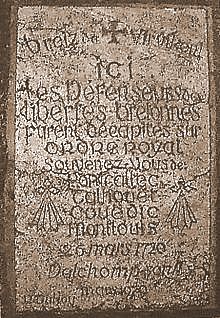 Breiz da
ICI
Les Défenseurs des
libertés bretonnes
furent décapités sur
ORDRE ROYAL
Souvenez-vous de
Pontcallec
Talhouet
Couëdic
Montlouis
26 mars 1720
Dalchomp
mars